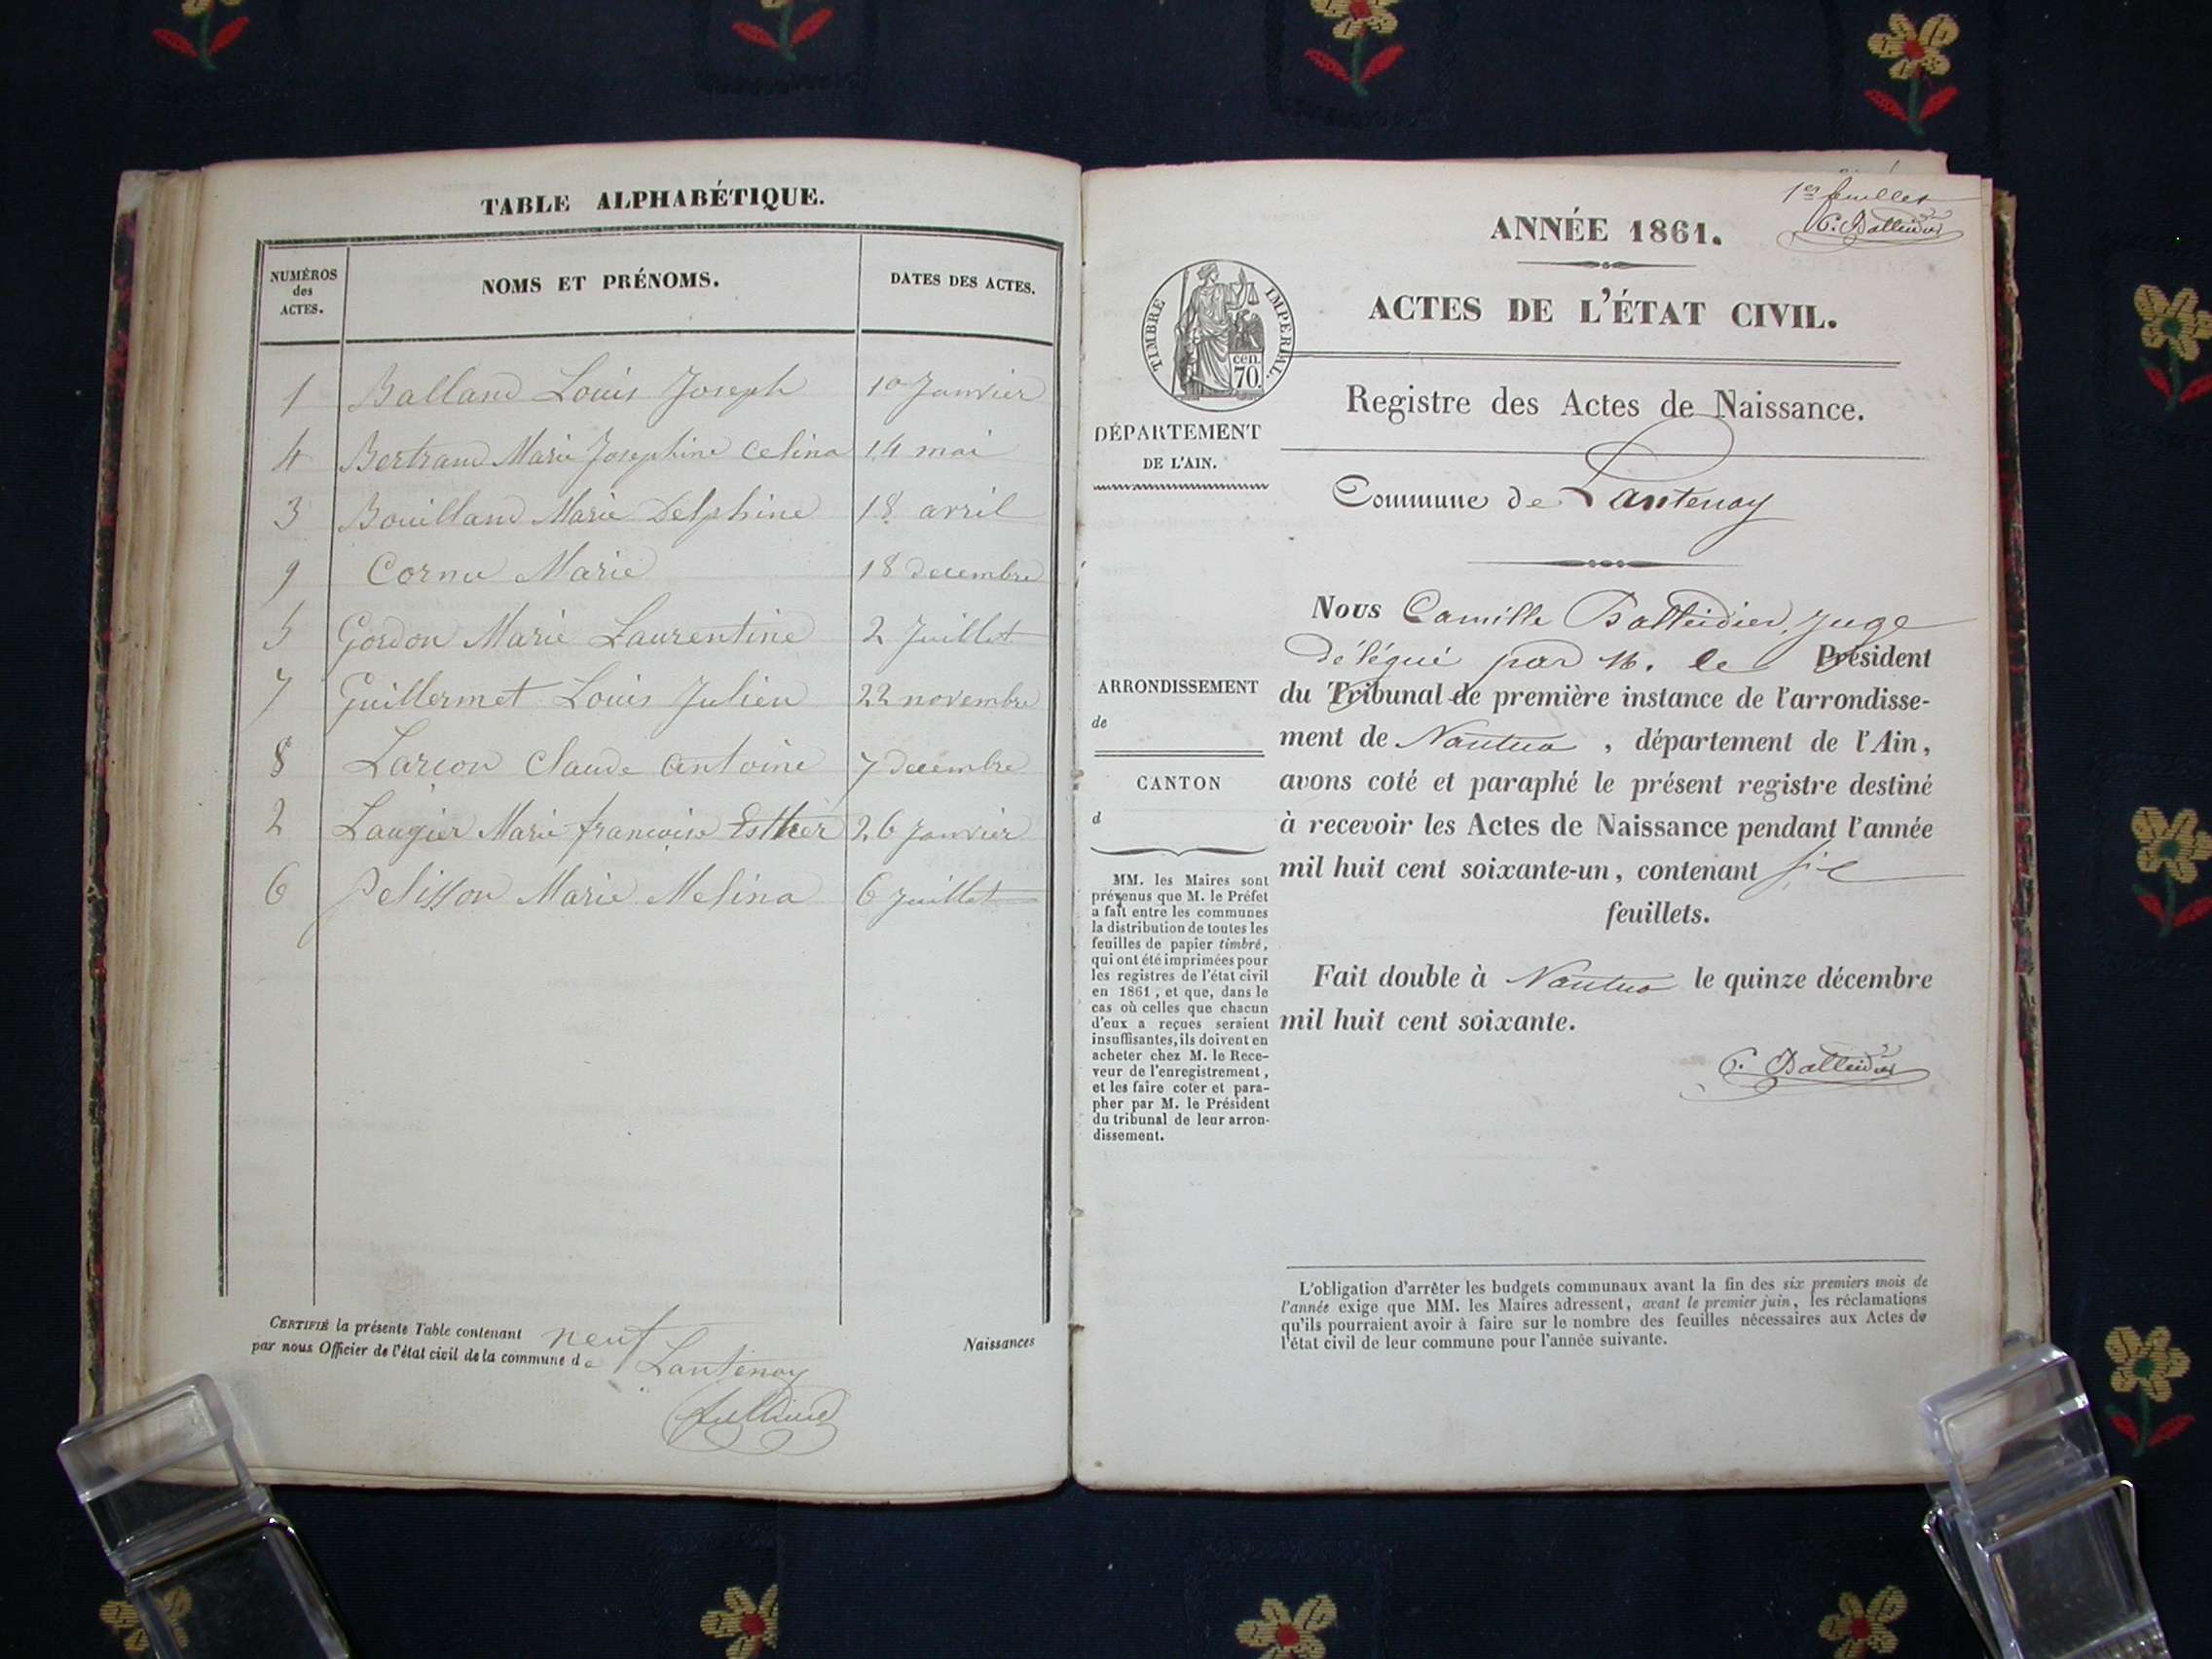 TABLE ALPHABÉTIQUE.
NUMÉROS des ACTES. NOMS ET PRÉNOMS. DATES DES ACTES.
1 Balland Louis Joseph 10 Janvier
4 Bertrand Marie Josephine Celina 14 mai
3 Bouilland Marie Delphine 18 avril
9 Cornu Marie 18 decembre
5 Gordon Marie Laurentine 2 Juillet
7 Guillermet Louis Julien 22 novembre
8 Larçon Claude Antoine 7 decembre
2 Laugier Marie françoise Esther 26 Janvier
6 Pelisson Marie Melina 6 Juillet
CERTIFIÉ la présente Table contenant neuf Naissances
par nous Officier de l'état civil de la commune de Lantenay
1er feuillet
C. Balleidier
ANNÉE 1861.
ACTES DE L'ÉTAT CIVIL.
TIMBRE IMPERIAL.
cen.
70.
Registre des Actes de Naissance.
DÉPARTEMENT
DE L'AIN.
Commune de Lantenay
Nous Camille Balleidier, Juge
délégué par M. le Président
du Tribunal de première instance de l'arrondisse-
ment de Nantua, département de l'Ain,
avons coté et paraphé le présent registre destiné
à recevoir les Actes de Naissance pendant l'année
mil huit cent soixante-un, contenant six
feuillets.
Fait double à Nantua le quinze décembre
mil huit cent soixante.
C. Balleidier
ARRONDISSEMENT
de
CANTON
d
MM. les Maires sont
prévenus que M. le Préfet
a fait entre les communes
la distribution de toutes les
feuilles de papier timbré,
qui ont été imprimées pour
les registres de l'état civil
en 1861, et que, dans le
cas où celles que chacun
d'eux a reçues seraient
insuffisantes, ils doivent en
acheter chez M. le Rece-
veur de l'enregistrement,
et les faire coter et para-
pher par M. le Président
du tribunal de leur arron-
dissement.
L'obligation d'arrêter les budgets communaux avant la fin des six premiers mois de
l'année exige que MM. les Maires adressent, avant le premier juin, les réclamations
qu'ils pourraient avoir à faire sur le nombre des feuilles nécessaires aux Actes de
l'état civil de leur commune pour l'année suivante.